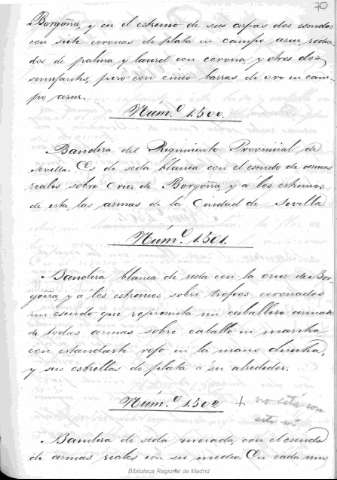 70
Borgoña, y en el estremo de sus aspas dos escudos
con siete coronas de plata en campo azur rodea-
dos de palma y laurel con corona, y otros dos
semejantes, pero con cinco barras de oro en cam-
po azur.
Núm.º 1.500.
Bandera del Regimiento Provincial de
Sevilla. C. de seda blanca con el escudo de armas
reales sobre Cruz de Borgoña y a los estremos
de esta las armas de la Ciudad de Sevilla
Núm.º 1.501.
Bandera blanca de seda con la cruz de Bor-
goña y a los estremos sobre trofeos coronados
un escudo que representa un caballero armado
de todas armas sobre caballo en marcha
con estandarte rojo en la mano derecha,
y seis estrellas de plata a su alrededor.
Núm.º 1502 + no está con
este nº
Bandera de seda morada, con el escudo
de armas reales en su medio. En cada uno
Biblioteca Regional de Madrid